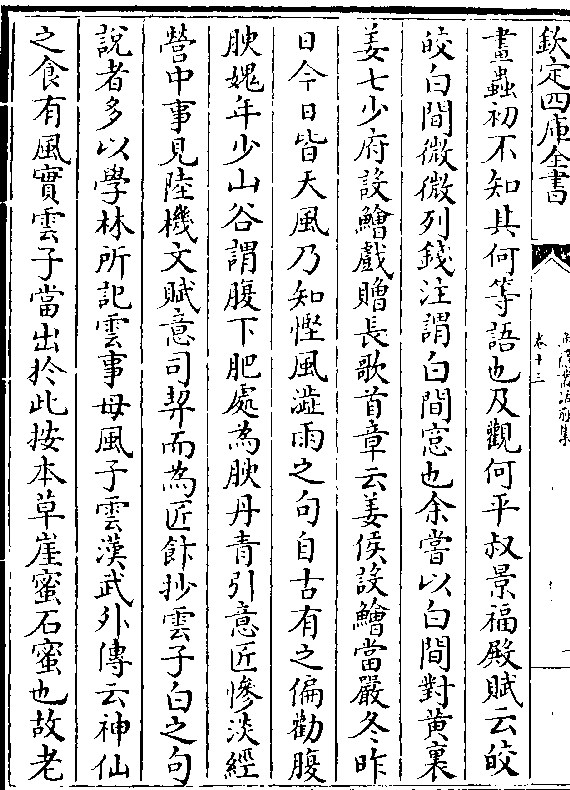 欽定四庫全書
卷十三
畫蟲初不知其何等語也及觀何平叔景福殿賦云皎
皎白間微微列錢注謂白間窓也余嘗以白間對黄裏
姜七少府設鱠戲贈長歌首章云姜侯設鱠當嚴冬昨
日今日皆天風乃知慳風澁雨之句自古有之偏勸腹
腴媿年少山谷謂腹下肥處為腴丹青引意匠慘淡經
營中事見陸機文賦意司契而為匠飰抄雲子白之句
說者多以學林所記雲事母風子雲漢武外傳云神仙
之食有風實雲子當出於此按本草崖蜜石蜜也故老